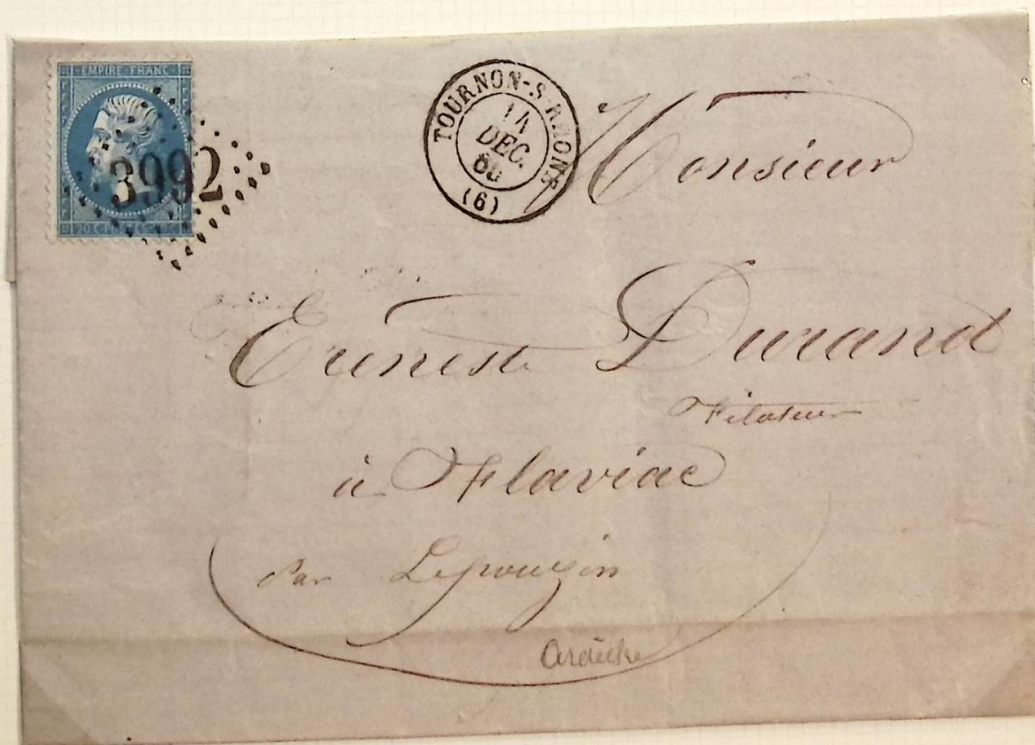 EMPIRE FRANC
3992
20 C POSTES 20 C
TOURNON-S-RHONE
14
DEC.
66
(6)
Monsieur
Erneste Durand
Filateur
à Flaviac
Par Lepouzin
Ardèche